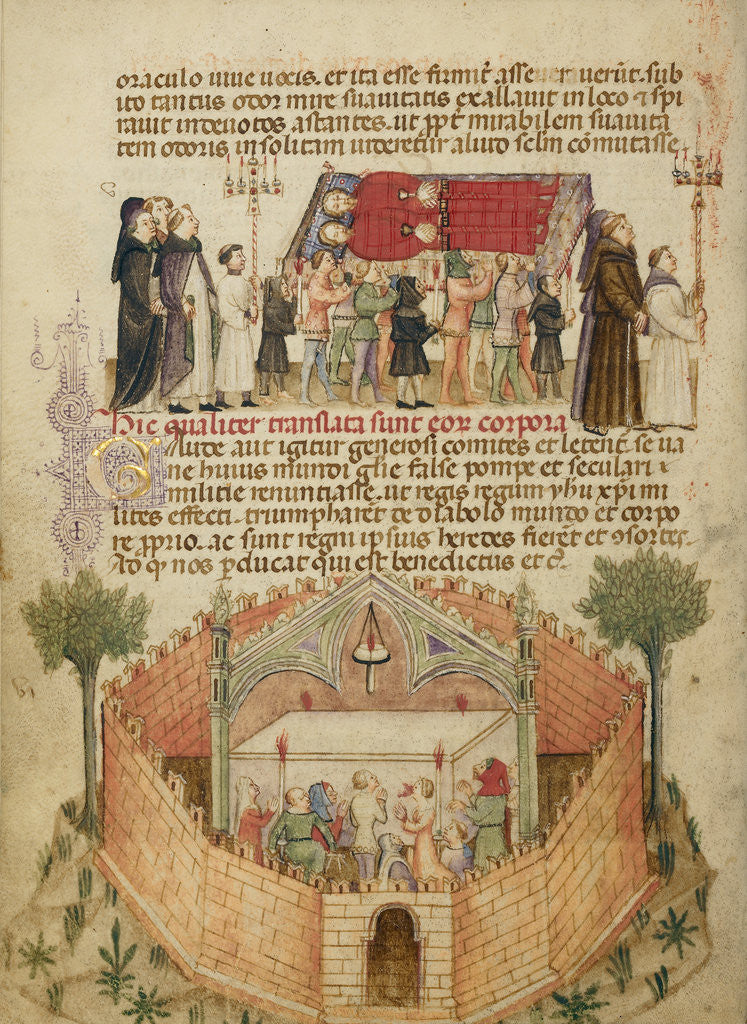 oraculo vive vocis. et ita esse firmit̃ asseververũt. sub
ito tantus odor mire suavitatis exallavit in loco ⁊ spi
ravit in devotos astantes. ut ꝓpt̃ mirabilem suavita
tem odoris insolitam videretur aliud seclm̃ cõmutasse.
Hic qualiter translata sunt eoꝝ corpora
Gaude aut igitur generosi comites et letent̃ se va
ne huius mundi gl̃ie false pompe et seculari
militie renuntiasse. ut regis regum yh̃u xp̃i mi
lites effecti. triumpharẽt de diabolo mundo et corpo
re ꝓprio. ac sunt regni ipsius heredes fierẽt et ꝯsortes.
Ad qͥ nos ꝑducat qui est benedictus et c̃.